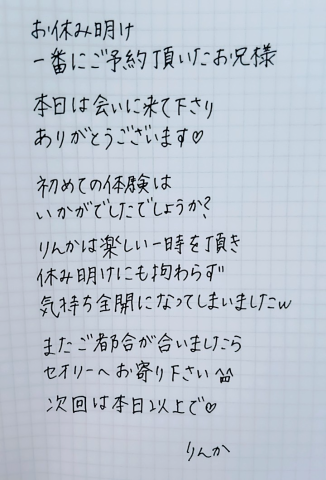 お休み明け
一番にご予約頂いたお兄様
本日は会いに来て下さり
ありがとうございます♡
初めての体験は
いかがでしたでしょうか?
りんかは楽しい一時を頂き
休み明けにも拘わらず
気持ち全開になってしまいましたw
またご都合が合いましたら
セオリーへお寄り下さい^^
次回は本日以上で♡
りんか